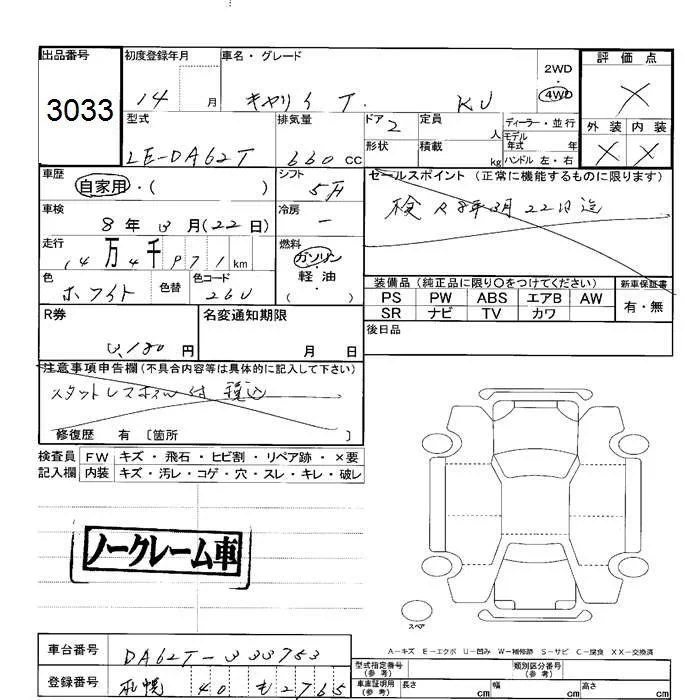 出品番号 初度登録年月 車名・グレード 2WD 評価点
3033 14 月 キャリイ T. KU 4WD ×
型式 排気量 ドア 2 定員 人 ディーラー・並行 外装 内装
LE-DA62T 660 CC 形状 積載 kg モデル年式 年 × ×
ハンドル 左・右
車歴 自家用・( ) シフト 5F セールスポイント (正常に機能するものに限ります)
車検 8年3月(22日) 冷房 ー 検 R8年3月22日迄
走行 14万4千971km 燃料 ガソリン 軽油 ( )
色 ホワイト 色替 色コード 26U
装備品 (純正品に限り○をつけてください) 新車保証書
PS PW ABS エアB AW 有・無
SR ナビ TV カワ
R券 3,180円 名変通知期限 月 日 後日品
注意事項申告欄 (不具合内容等は具体的に記入して下さい)
スタットレスホイル付 税込
修復歴 有 〔箇所 〕
検査員 FW キズ・飛石・ヒビ割・リペア跡・×要
記入欄 内装 キズ・汚レ・コゲ・穴・スレ・キレ・破レ
ノークレーム車
スペア
A-キズ E-エクボ U-凹み W-補修跡 S-サビ C-腐食 XX-交換済
車台番号 DA62T-333753 型式指定番号 (参考) 類別区分番号 (参考)
登録番号 札幌 40 も2765 車庫証明用 (参考) 長さ cm 幅 cm 高さ cm